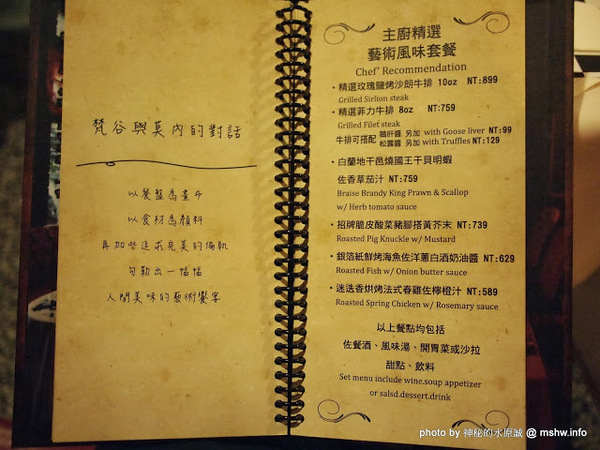 梵谷與莫內的對話
以餐盤為畫布
以食材為顏料
再加些追求完美的偏執
勾勒出一幅幅
人間美味的藝術饗宴
主廚精選
藝術風味套餐
Chef' Recommendation
・精選玫瑰鹽烤沙朗牛排 10oz NT:899
Grilled Sirlion steak
・精選菲力牛排 8oz NT:759
Grilled Filet steak
牛排可搭配 鵝肝醬 另加 with Goose liver NT:99
松露醬 另加 with Truffles NT:129
・白蘭地干邑燒國王干貝明蝦
佐香草茄汁 NT:759
Braise Brandy King Prawn & Scallop
w/ Herb tomato sauce
・招牌脆皮酸菜豬腳搭黃芥末 NT:739
Roasted Pig Knuckle w/ Mustard
・銀箔紙鮮烤海魚佐洋蔥白酒奶油醬 NT:629
Roasted Fish w/ Onion butter sauce
・迷迭香烘烤法式春雞佐檸橙汁 NT:589
Roasted Spring Chicken w/ Rosemary sauce
以上餐點均包括
佐餐酒、風味湯、開胃菜或沙拉
甜點、飲料
Set menu include wine.soup appetizer
or salsd.dessert.drink
photo by 神秘的水原誠 @ mshw.info